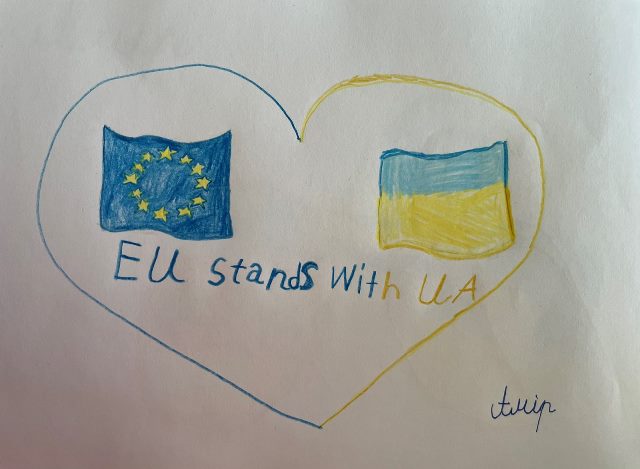 EU stands with UA
Амір